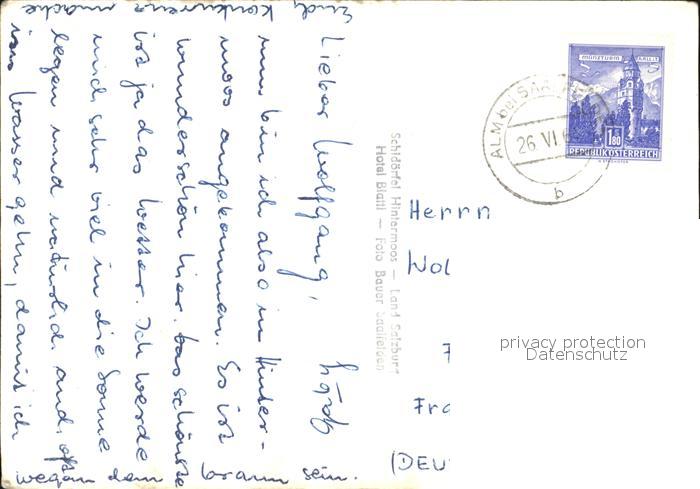 Lieber Wolfgang,
nun bin ich also in Hinter-
moos angekommen. Es ist
wunderschön hier. Das schönste
ist ja das Wetter. Ich werde
mich sehr viel in die Sonne
legen und natürlich auch oft
ins Wasser gehn, damit ich
wegen dem braun sein.
Euch Konkurrenz mache
Schidörfel Hintermoos — Land Salzburg
Hotel Blattl — Foto Bauer Saalfelden
MÜNZTURM HALL I. T.
1.80
REPUBLIK ÖSTERREICH
ALM bei SAA
26. VI. 6
b
Herrn
Wol
7
Fra
(DEU
privacy protection
Datenschutz